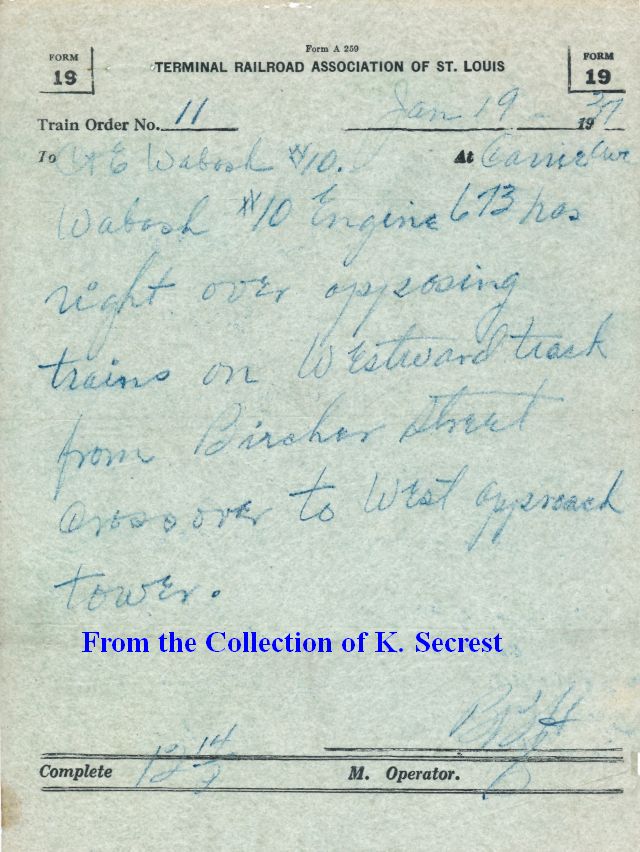 Form A 259
FORM 19 TERMINAL RAILROAD ASSOCIATION OF ST. LOUIS FORM 19
Train Order No. 11 Jan 19 - 1937
To C & E Wabash #10. At Carrie Ave
Wabash #10 Engine 673 has
right over opposing
trains on Westward track
from Bircher Street
Crossover to West approach
tower.
From the Collection of K. Secrest
Complete 12 14 M. Operator.